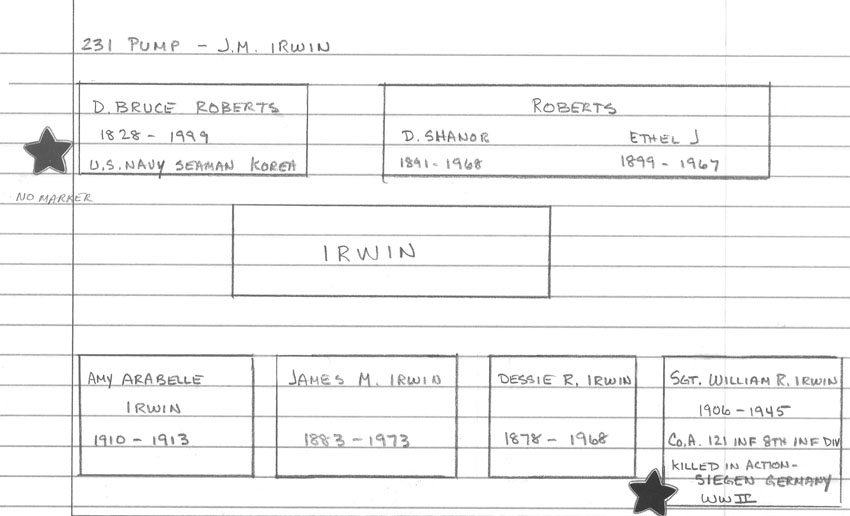 231 PUMP - J.M. IRWIN
D. BRUCE ROBERTS
1828 - 1999
U.S. NAVY SEAMAN KOREA
ROBERTS
D. SHANOR
ETHEL J
1891 - 1968
1899 - 1967
NO MARKER
IRWIN
AMY ARABELLE
IRWIN
1910 - 1913
JAMES M. IRWIN
1883 - 1973
DESSIE R. IRWIN
1878 - 1968
SGT. WILLIAM R. IRWIN
1906 - 1945
CO. A. 121 INF 8TH INF DIV
KILLED IN ACTION -
SIEGEN GERMANY
WW II